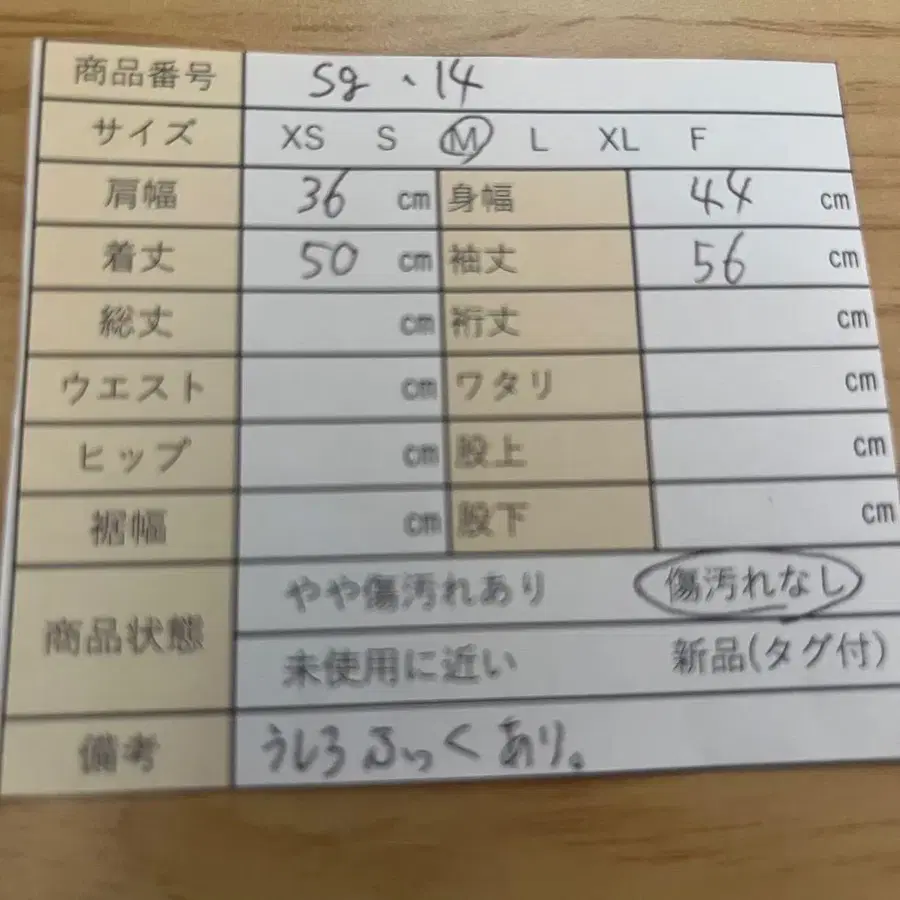 商品番号 Sg、14
サイズ XS S M L XL F
肩幅 36 cm 身幅 44 cm
着丈 50 cm 袖丈 56 cm
総丈 cm 裄丈 cm
ウエスト cm ワタリ cm
ヒップ cm 股上 cm
裾幅 cm 股下 cm
商品状態 やや傷汚れあり 傷汚れなし
未使用に近い 新品(タグ付)
備考 うしろふっくあり。